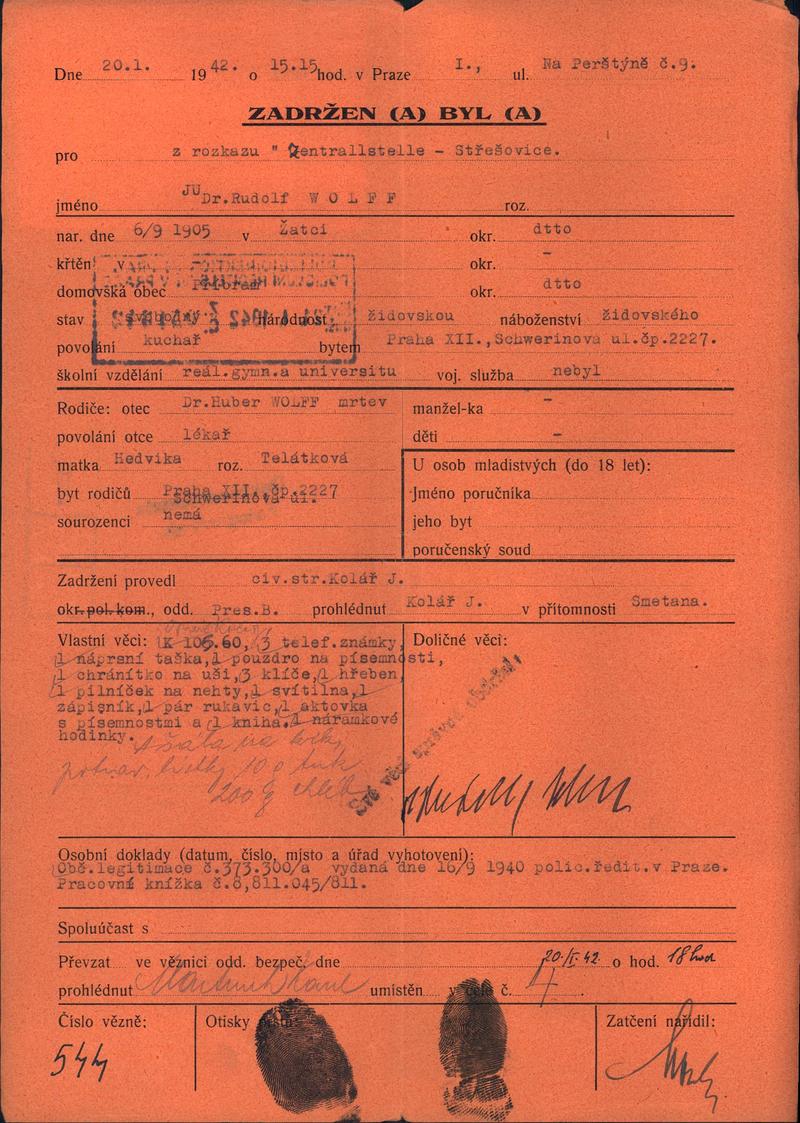 Dne 20.1. 1942. o 15.15 hod. v Praze I., ul. Na Perštýně č.9.
ZADRŽEN (A) BYL (A)
pro z rozkazu " Zentrallstelle - Střešovice.
jméno JUDr.Rudolf WOLFF roz.
nar. dne 6/9 1905 v Žatci okr. dtto
křtěn v - okr. -
domovská obec Příbram okr. dtto
stav svobodný národnost židovskou náboženství židovského
povolání kuchař bytem Praha XII.,Schwerinova ul.čp.2227.
školní vzdělání reál.gymn.a universitu voj. služba nebyl
Rodiče: otec Dr.Huber WOLFF mrtev manžel-ka -
povolání otce lékař děti -
matka Hedvika roz. Telátková U osob mladistvých (do 18 let):
byt rodičů Praha XII. čp.2227 Schwerinova ul. Jméno poručníka
sourozenci nemá jeho byt
poručenský soud
Zadržení provedl civ.str.Kolář J.
okr. pol. kom., odd. Pres.B. prohlédnut Kolář J. v přítomnosti Smetana.
Vlastní věci: K 106.60, 3 telef.známky, Doličné věci:
1 náprsní taška,1 pouzdro na písemnosti,
1 chránítko na uši,3 klíče,1 hřeben,
1 pilníček na nehty,1 svítilna,1
zápisník,1 pár rukavic,1 aktovka
s písemnostmi a 1 kniha.1 náramkové
hodinky.
1 šála na krk,
potrav. lístky, 100 tuk
200 g chléb
Své věci správně obdržel:
Osobní doklady (datum, číslo, místo a úřad vyhotovení):
Obč.legitimace č.373.300/a vydaná dne 16/9 1940 polic.ředit.v Praze.
Pracovní knížka č.8,811.045/811.
Spoluúčast s
Převzat ve věznici odd. bezpeč. dne 20/I. 42. o hod. 18 hod
prohlédnut umístěn v cele č. 4
Číslo vězně: Otisky prstů: Zatčení nařídil:
544